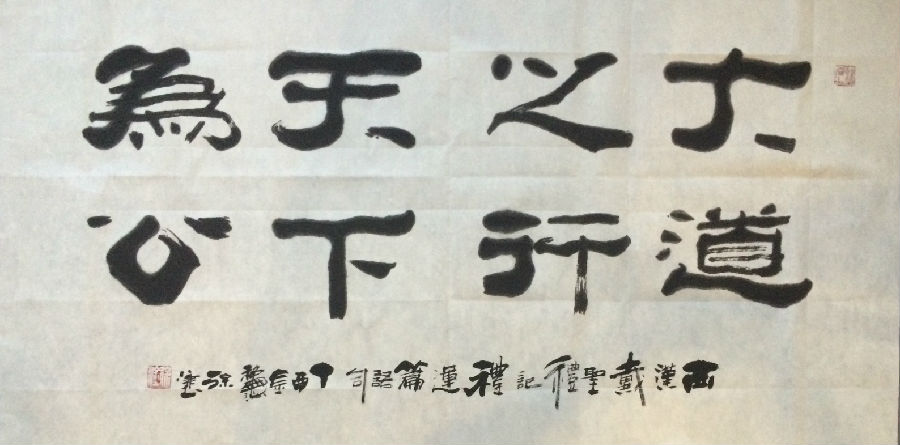 大道
之行
天下
為公
西漢戴聖禮記禮運篇語句丁酉